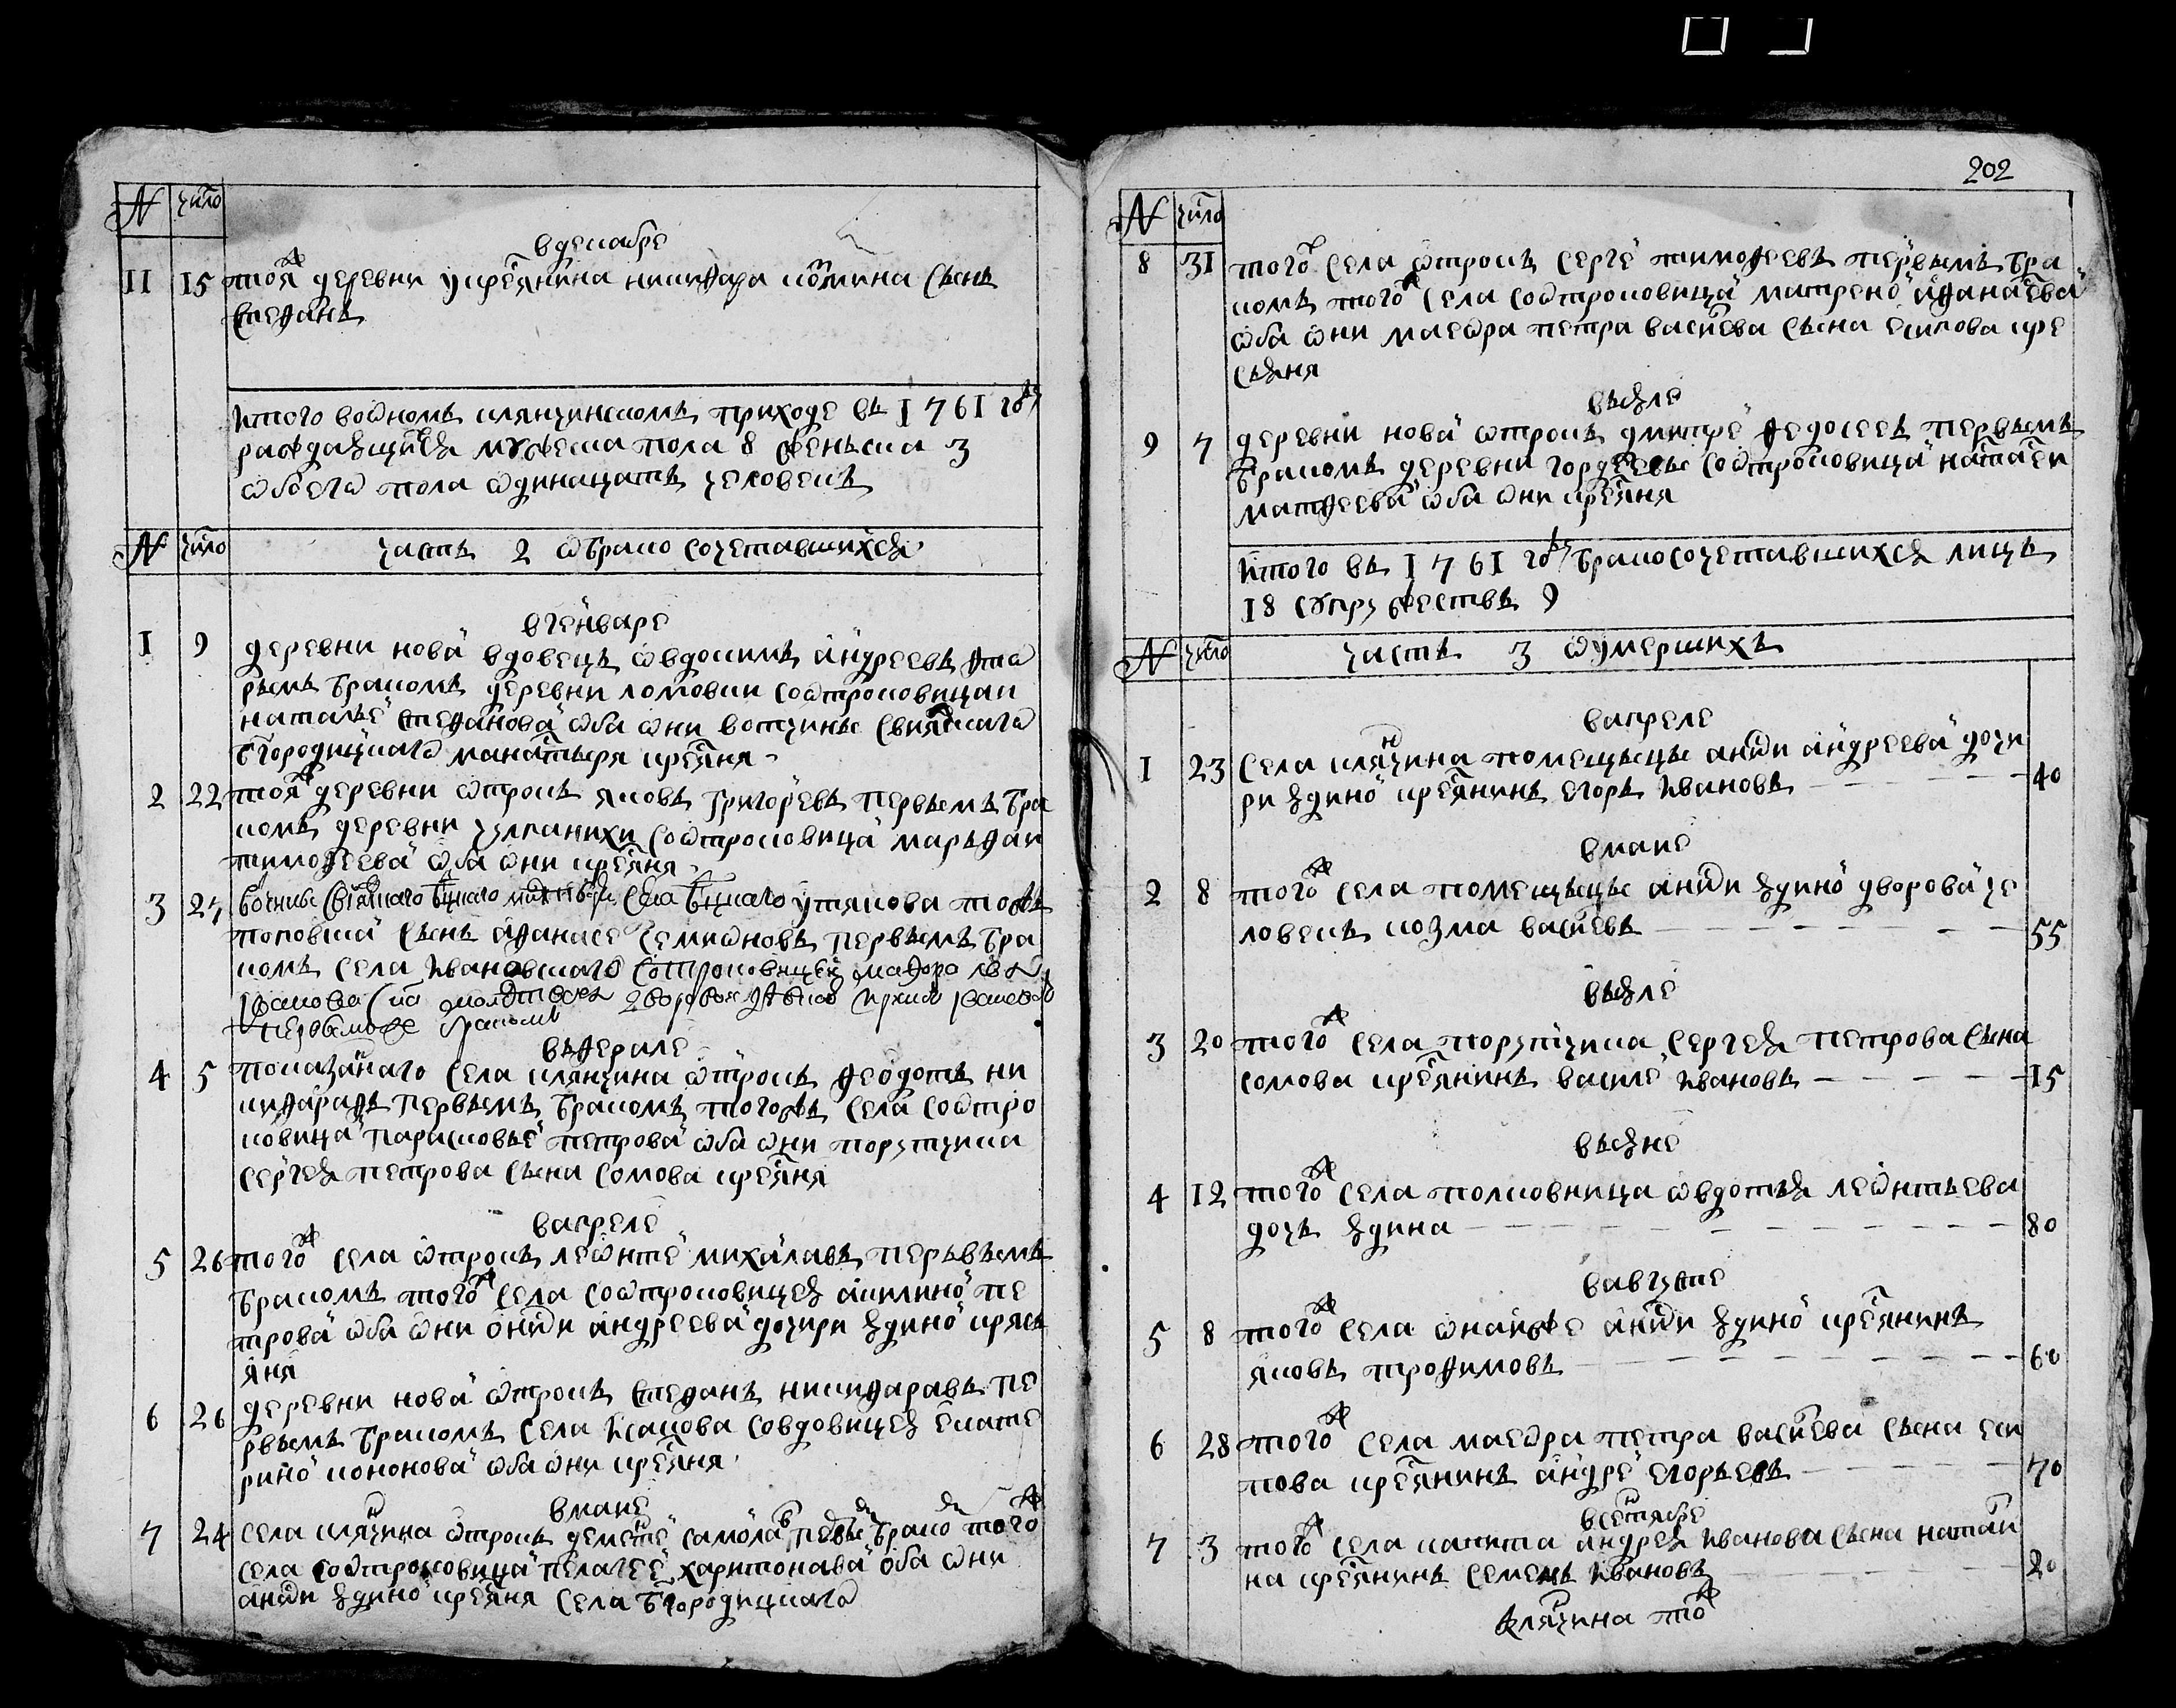 № число
в декабре
11 15 тоя ж деревни у крестянина никифара козмина сынъ
стефанъ
итого во оном клянчинском приходе въ 1761 году
раждающихся мужеска пола 8 женьска 3
обоего пола одинацать человекъ
№ число часть 2 о брако сочетавшихся
в генваре
1 9 деревни новай вдовецъ овдокимъ андреевъ вто
рымъ бракомъ деревни ломовки со отроковицаи
натальей стефановай оба они вотчины свияжскаго
бгородицкаго манастыря крестяня
2 22 тоя ж деревни отрокъ яковъ григоревъ первымъ бра
комъ деревни чулпанихи со отроковицай марьфаи
тимофеевай оба они крестяня
3 27 утякова тожъ
поповскай сынъ афанасей семионовъ первымъ бра
комъ села ивановскаго
первымже бракомъ
в феврале
4 5 показанаго села клянчина отрокъ феодотъ ни
кифаравъ первымъ бракомъ тогожъ села со отро
ковицай парасковьей петровай оба они порутчика
сергея петрова сына сомова крестяня
в апреле
5 26 того ж села отрокъ леонтей михалавъ перьвымъ
бракомъ того ж села со отроковицей акилиной пе
тровай оба они анни андреевай дочири ядиной кресь
яня
6 26 деревни новай отрокъ стефанъ никифаравъ пе
рвымъ бракомъ села исакова со вдовицей екате
риной кононовай оба они крестяня
в маие
7 24 села клянчина отрокъ дементей самолав первым браком того ж
села со отроковицай пелагеей харитонавай оба они
анни ядиной крестяня села бгородицкаго
202
№ число
8 31 того ж села отрокъ сергей тимофеевъ первымъ бра
комъ того ж села со отроковицай матреной афанасевай
оба они маеора петра василева сына есипова кре
сьяня
в июле
9 7 деревни новай отрокъ дмитрей федосеевъ первымъ
бракомъ деревни гордеевы со отроковицай наталеи
матфеевай оба они крестяня
итого въ 1761 году бракосочетавшихся лицъ
18 супружествъ 9
№ число часть 3 о умершихъ
в апреле
1 23 села клянчина помещьицы анни андреевай дочи
ри ядиной крестянинъ егоръ ивановъ 40
в маие
2 8 того ж села помещьицы анни ядиной дворовай че
ловекъ козма василевъ 55
в июле
3 20 того ж села порутчика сергея петрова сына
сомова крестянинъ василей ивановъ 15
в июне
4 12 того ж села полковница овдотья леонтьева
дочь ядина 80
в августе
5 8 того ж села онай же анни ядиной крестянинъ
яковъ трофимовъ 60
6 28 того ж села маеора петра василева сына еси
пова крестянинъ андрей егорьевъ 70
в сентябре
7 3 того ж села капита андрея иванова сына натаи
на крестянинъ семенъ ивановъ 20
клянчина то ж